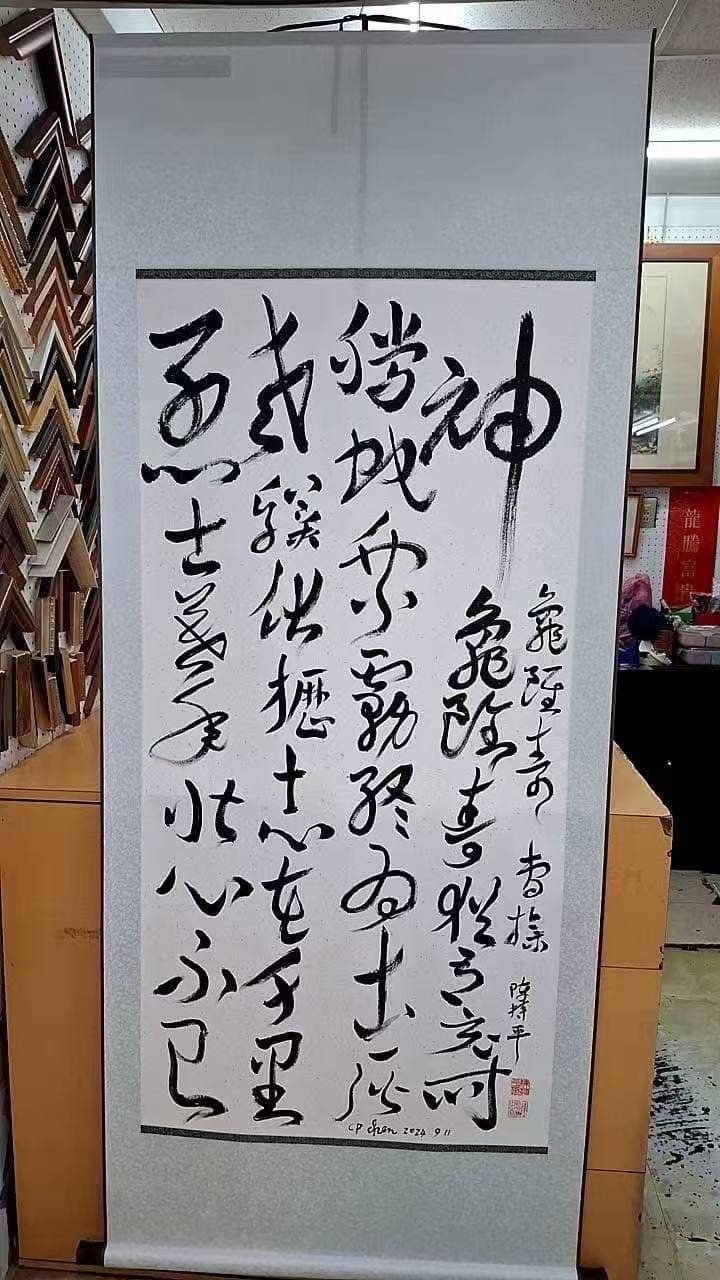 神龜雖壽猶有竟時
騰蛇乘霧終為土灰
老驥伏櫪志在千里
烈士暮年壯心不已
龜雖壽 曹操 陳持平
CP Chen 2024 9 11
龍騰富貴